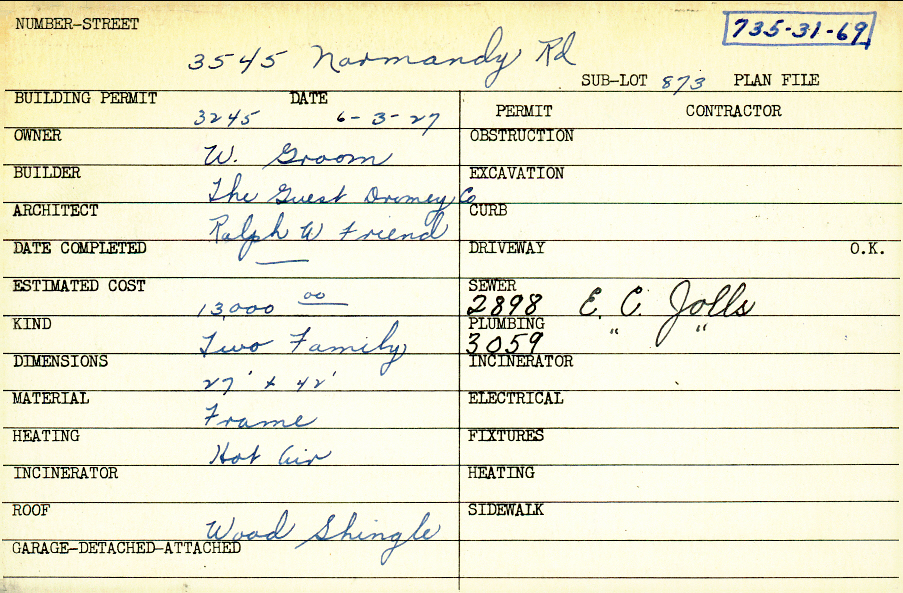 NUMBER-STREET
735-31-69
3545 Normandy Rd
SUB-LOT 873 PLAN FILE
BUILDING PERMIT DATE
3245 6-3-27
OWNER
W. Groom
BUILDER
The Guest Dromey Co
ARCHITECT
Ralph W Friend
DATE COMPLETED
—
ESTIMATED COST
13,000 00
KIND
Two Family
DIMENSIONS
27' x 42'
MATERIAL
Frame
HEATING
Hot Air
INCINERATOR
ROOF
Wood Shingle
GARAGE-DETACHED-ATTACHED
PERMIT CONTRACTOR
OBSTRUCTION
EXCAVATION
CURB
DRIVEWAY O.K.
SEWER
2898 E. C. Jolls
PLUMBING
3059 " "
INCINERATOR
ELECTRICAL
FIXTURES
HEATING
SIDEWALK